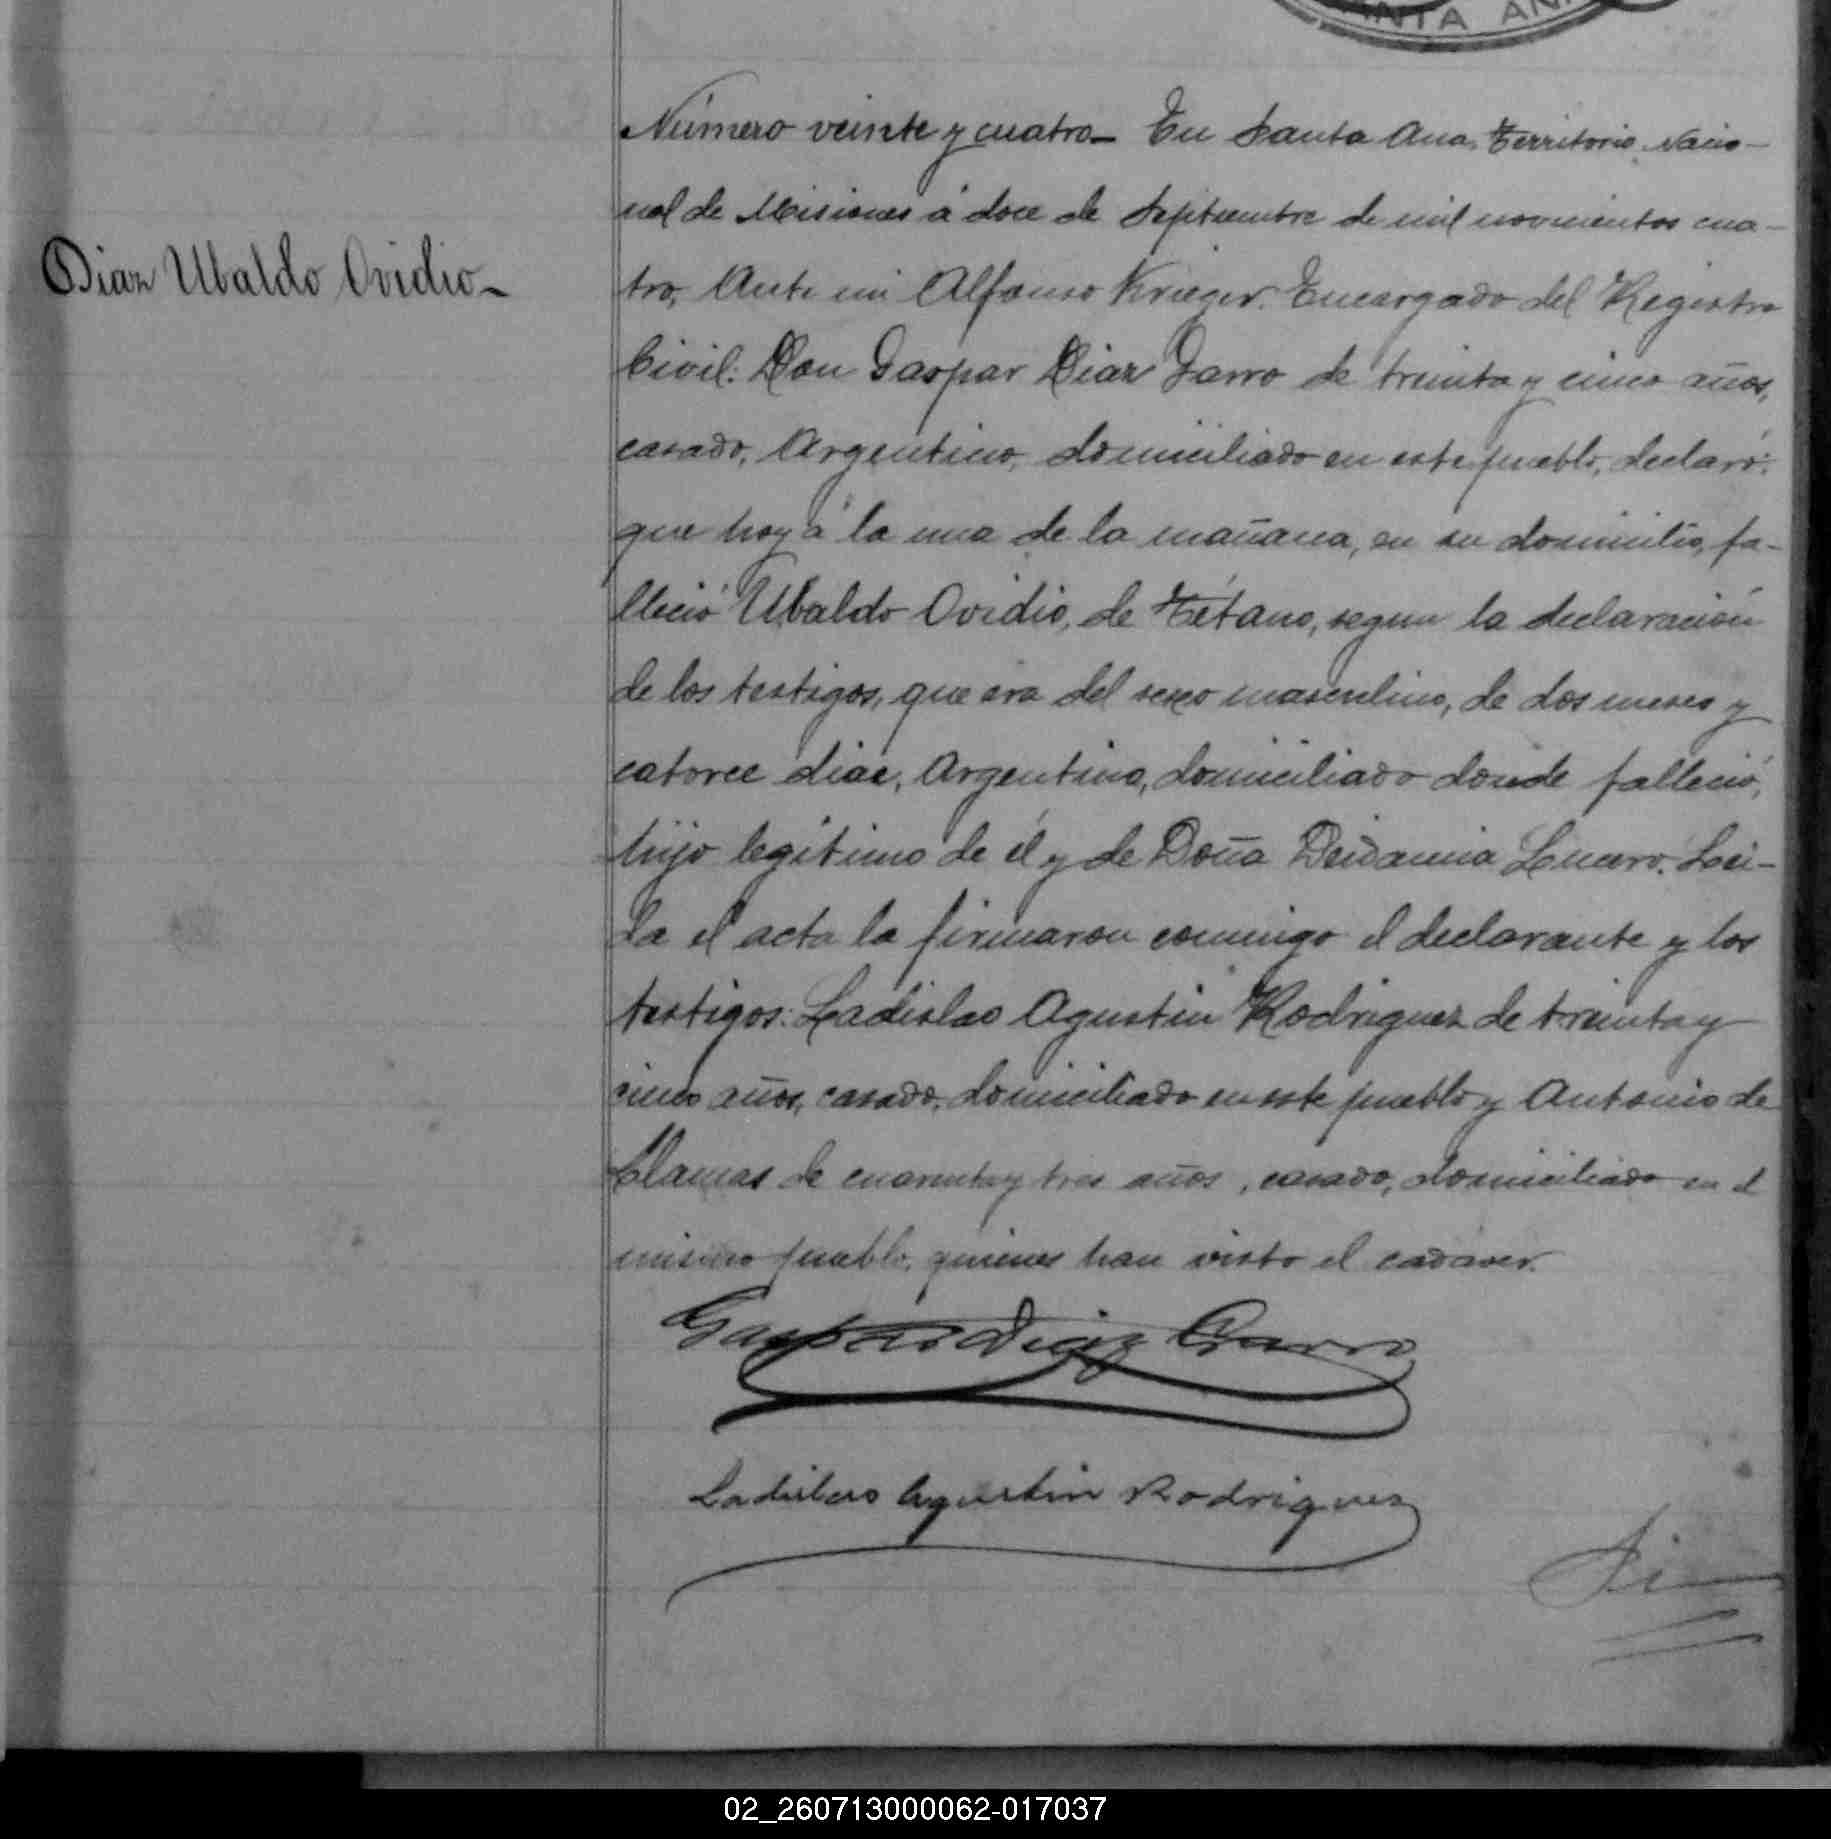 NTA AN
Número veinte y cuatro_ En Santa Ana, Territorio Nacio-
nal de Misiones á doce de Septiembre de mil novecientos cua-
Diaz Ubaldo Ovidio_
tro, Ante mi Alfonso Krieger. Encargado del Registro
Civil: Don Gaspar Diaz Garro de treinta y cinco años,
casado, Argentino, domiciliado en este pueblo, declaró:
que hoy á la una de la mañana, en su domicilio, fa-
lleció Ubaldo Ovidio, de Tétano, segun la declaración
de los testigos, que era del sexo masculino, de dos meses y
catorce dias, Argentino, domiciliado donde falleció,
hijo legítimo de él y de Doña Deidamia Lucero. Lei-
da el acta la firmaron conmigo el declarante y los
testigos: Ladislao Agustin Rodriguez de treinta y
cinco años, casado, domiciliado en este pueblo y Antonio de
Llamas de cuarenta y tres años, casado, domiciliado en el
mismo pueblo, quienes han visto el cadaver.
Gaspar Diaz Garro
Ladislao Agustin Rodriguez
02_260713000062-017037